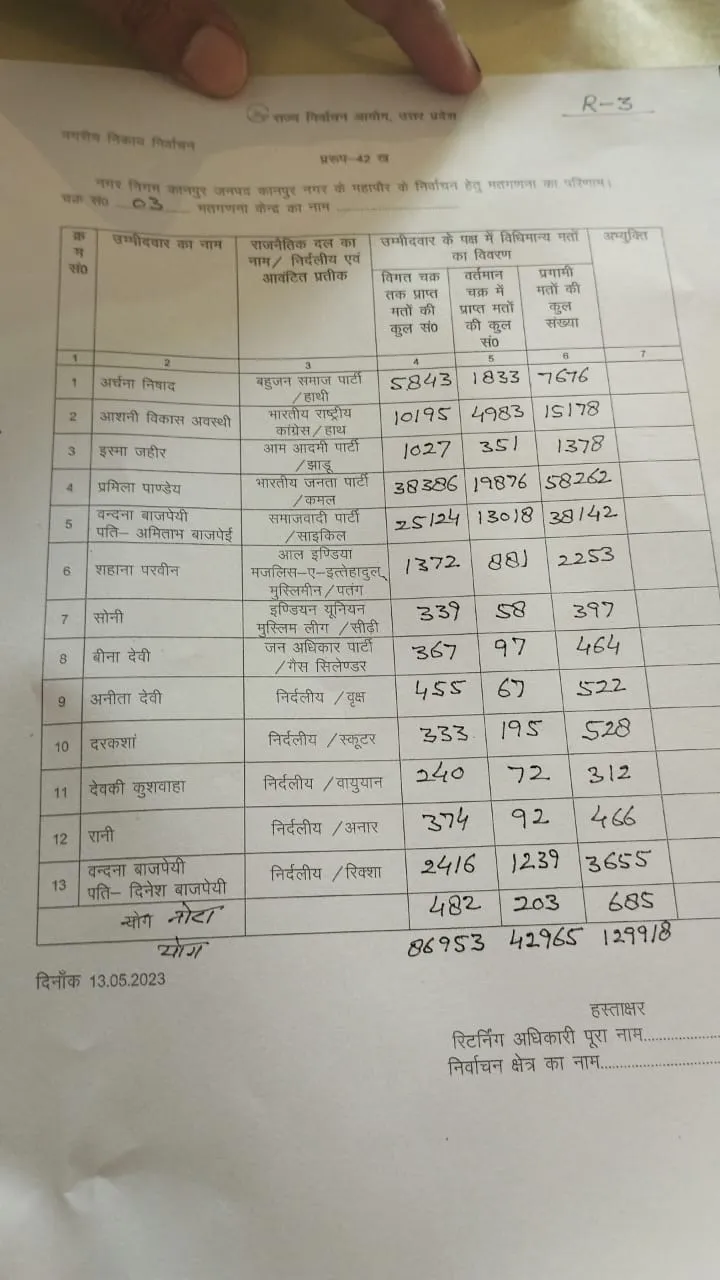 R-3
राज्य निर्वाचन आयोग, उत्तर प्रदेश
नगरीय निकाय निर्वाचन
प्ररूप-42 ख
नगर निगम कानपुर जनपद कानपुर नगर के महापौर के निर्वाचन हेतु मतगणना का परिणाम।
चक्र सं0 03 मतगणना केन्द्र का नाम ....................
क्र म सं0 | उम्मीदवार का नाम | राजनैतिक दल का नाम/ निर्दलीय एवं आवंटित प्रतीक | उम्मीदवार के पक्ष में विधिमान्य मतों का विवरण | अभ्युक्ति
विगत चक्र तक प्राप्त मतों की कुल सं0 | वर्तमान चक्र में प्राप्त मतों की कुल सं0 | प्रगामी मतों की कुल संख्या
1 2 3 4 5 6 7
1 अर्चना निषाद बहुजन समाज पार्टी /हाथी 5843 1833 7676
2 आशनी विकास अवस्थी भारतीय राष्ट्रीय कांग्रेस/हाथ 10195 4983 15178
3 इस्मा जहीर आम आदमी पार्टी /झाडू 1027 351 1378
4 प्रमिला पाण्डेय भारतीय जनता पार्टी /कमल 38386 19876 58262
5 वन्दना बाजपेयी पति- अमिताभ बाजपेई समाजवादी पार्टी /साइकिल 25124 13018 38142
6 शहाना परवीन आल इण्डिया मजलिस-ए-इत्तेहादुल् मुस्लिमीन/पतंग 1372 881 2253
7 सोनी इण्डियन यूनियन मुस्लिम लीग /सीढ़ी 339 58 397
8 बीना देवी जन अधिकार पार्टी /गैस सिलेण्डर 367 97 464
9 अनीता देवी निर्दलीय /वृक्ष 455 67 522
10 दरकशां निर्दलीय /स्कूटर 333 195 528
11 देवकी कुशवाहा निर्दलीय /वायुयान 240 72 312
12 रानी निर्दलीय /अनार 374 92 466
13 वन्दना बाजपेयी पति- दिनेश बाजपेयी निर्दलीय /रिक्शा 2416 1239 3655
योग नोटा 482 203 685
योग 86953 42965 129918
दिनाँक 13.05.2023
हस्ताक्षर
रिटर्निंग अधिकारी पूरा नाम....................
निर्वाचन क्षेत्र का नाम....................